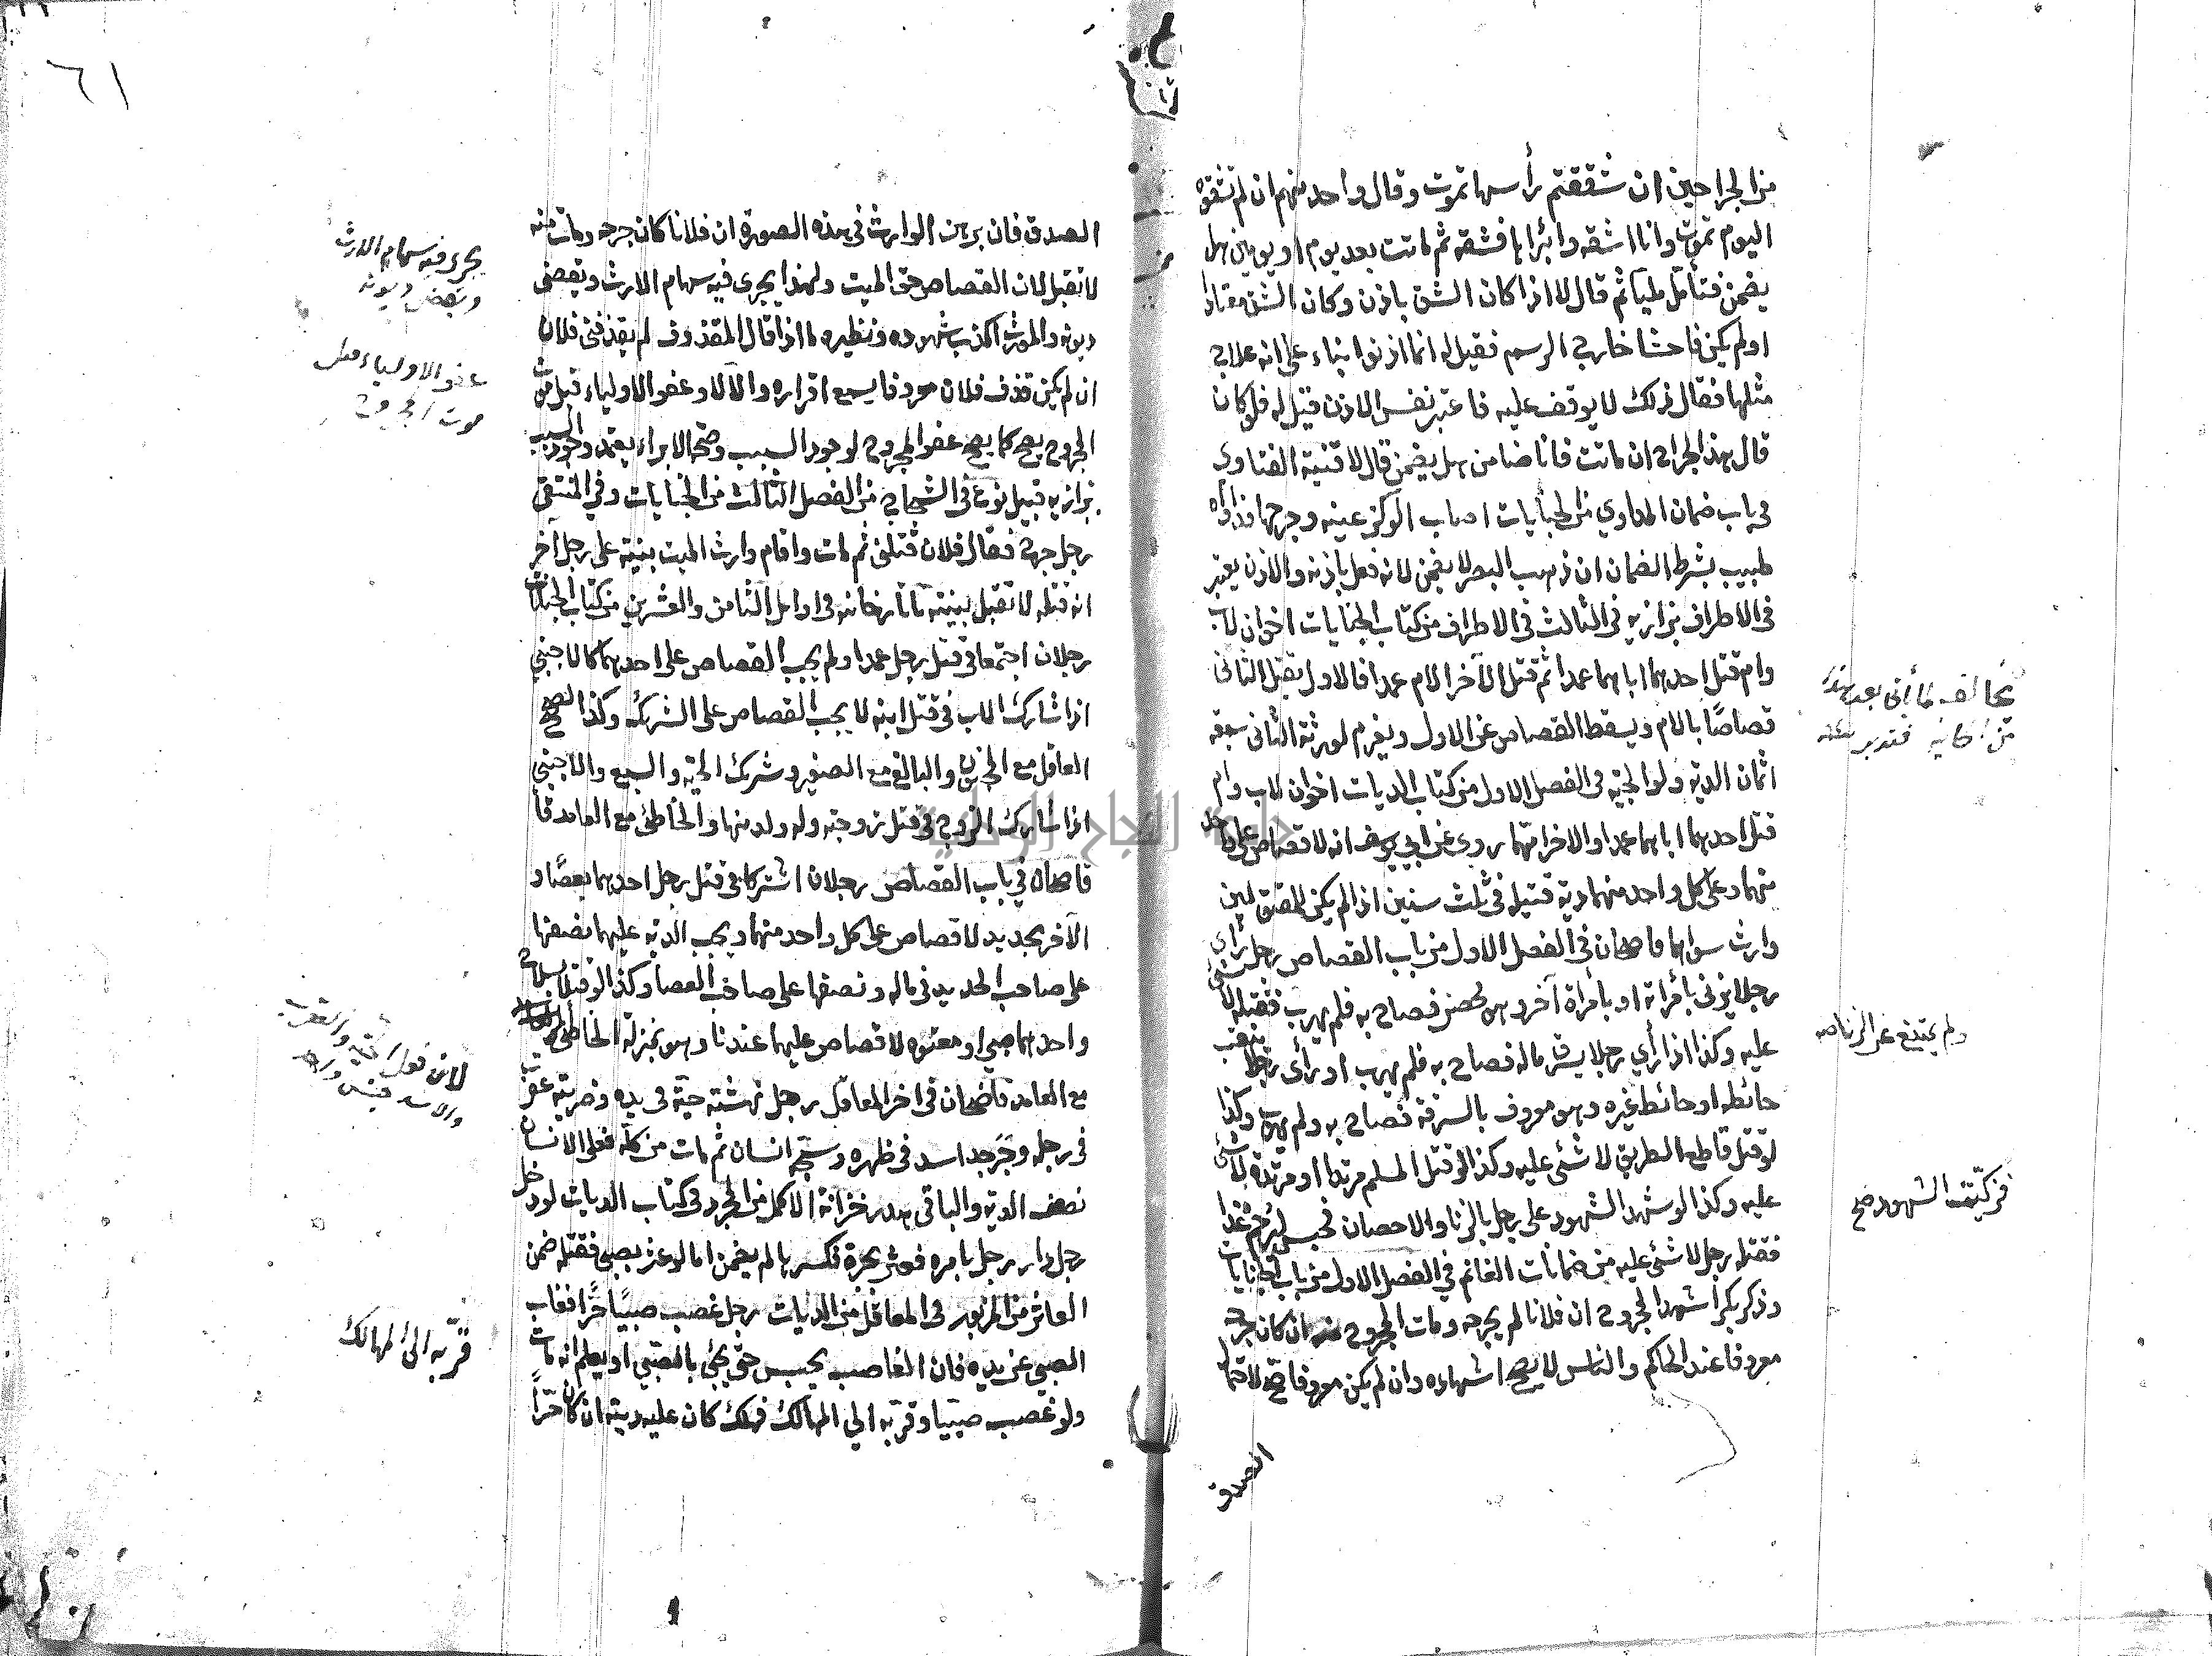 من الجراحين ان شققتم رأسها تموت وقال واحد منهم ان لم تشقوه
اليوم تموت وانا اشقه وابرأها فشقه ثم ماتت بعد يوم او يومين هل
يضمن فتأمل مليا ثم قال لا اذا كان الشق باذن وكان الشق معتادا
ولم يكن فاحشا خارج الرسم فقيل له انما اذنوا بناء على انه علاج
مثلها فقال ذلك لا يوقف عليه فاعتبر نفس الاذن قيل له فلو كان
قال هذا الجراح ان ماتت فانا ضامن هل يضمن قال لا قنية الفتاوي
في باب ضمان المداوي من الجنايات اصاب الوكز عينه وجرحها فداواه
طبيب بشرط الضمان ان ذهب البصر لا يضمن لانه فعل باذنه والاذن يعتبر
في الاطراف بزازيه في الثالث في الاطراف من كتاب الجنايات اخوان لاب
وام قتل احدهما اباهما عمدا ثم قتل الآخر الام عمدا فالاول يقتل الثاني
قصاصا بالام ويسقط القصاص عن الاول ويغرم لورثة الثاني سبعة
اثمان الدية ولوالجيه في الفصل الاول من كتاب الديات اخوان لاب وام
قتل احدهما اباهما عمدا والاخر امهما روي عن ابي يوسف انه لا قصاص على واحد
منهما وعلى كل واحد منهما دية قتيله في ثلث سنين اذا لم يكن للمقتولين
وارث سواهما قاضيخان في الفصل الاول من باب القصاص رجل رأى
رجلا يزني بامرأته او بامرأة آخر وهو محصن فصاح به فلم يهرب فقتله لا شئ
عليه وكذا اذا رأي رجلا يسرق ماله فصاح به فلم يهرب او رأى رجلا ينقب
حائطه او حائط غيره وهو معروف بالسرقة فصاح به ولم يهرب وكذا
لو قتل قاطع الطريق لا شئ عليه وكذا لو قتل المسلم مرتدا او مرتدة لا شئ
عليه وكذا لو شهد الشهود على رجل بالزنا والاحصان فحبس ليرجم غدا
فقتله رجل لا شئ عليه من ضمانات الغانم في الفصل الاول من باب الجنايات
وذكر بكر اشهد المجروح ان فلانا لم يجرحه ومات المجروح منه ان كان جرحه
معروفا عند الحاكم والناس لا يصح اشهاده وان لم يكن معروفا صح لاحتمال
الصدق
يخالف لما أتى بعد هذا
من الخانيه فتدبر
ولم يمتنع عن الزنا صح
فزكيت الشهود صح
٦١
الصدق فان برهن الوارث في هذه الصورة ان فلانا كان جرحه ومات منه
لا تقبل لان القصاص حق الميت ولهذا يجري فيه سهام الارث ويقضى
ديونه والمورث اكذب شهوده ونظيره ما اذا قال المقذوف لم يقذفني فلان
ان لم يكن قذف فلان معروفا يسمع اقراره والا لا وعفو الاولياء قبل موت
المجروح يصح كما يصح عفو المجروح لوجود السبب وصحة الابراء يعتمد وجود السبب
بزازيه قبيل نوع في الشجاج من الفصل الثالث من الجنايات وفي المنتقى
رجل جرح فقال فلان قتلني ثم مات واقام وارث الميت بينة على رجل آخر
انه قتله لا تقبل بينته تاتارخانيه في اوائل الثامن والعشرين من كتاب الجنايات
رجلان اجتمعا في قتل رجل عمدا ولم يجب القصاص على احدهما كالاجنبي
اذا شارك الاب في قتل ابنه لا يجب القصاص على الشريك وكذا الصحيح
العاقل مع المجنون والبالغ مع الصغير وشريك الحية والسبع والاجنبي
اذا شارك الزوج في قتل زوجته وله ولد منها والخاطئ مع العامد
قاضيخان في باب القصاص رجلان اشتركا في قتل رجل احدهما بعصا و
الآخر بحديد لا قصاص على كل واحد منهما ويجب الدية عليهما نصفها
على صاحب الحديد في ماله ونصفها على صاحب العصا وكذا لو قتلا بسلاح
واحدهما صبي او معتوه لا قصاص عليهما عندنا وهو بمنزلة الخاطئ
مع العامد قاضيخان في اخر المعاقل رجل نهشته حية في يده وضربته عقرب
في رجله وجرحه اسد في ظهره وشجه انسان ثم مات من كله فعلى الانسان
نصف الدية والباقي هدر خزانة الاكمل من المجرد في كتاب الديات لو دخل
رجل دار رجل بامره فعثر بجرة فكسرها لم يضمن اما لو عثر بصبي فقتله ضمن
العاثر من المزبور في المعاقل من الديات رجل غصب صبيا حرا فغاب
الصبي عن يده فان الغاصب يحبس حتى يجئ بالصبي او يعلم انه مات
ولو غصب صبيا وقربه الي المهالك فهلك كان عليه ديته ان كان حرا
يجري فيه سهام الارث
ويقضى ديونه
عفو الاولياء قبل
موت المجروح
لان فعل الحية والعقرب
والاسد جنس واحد
قربه الى المهالك
جامعة النجاح الوطنية